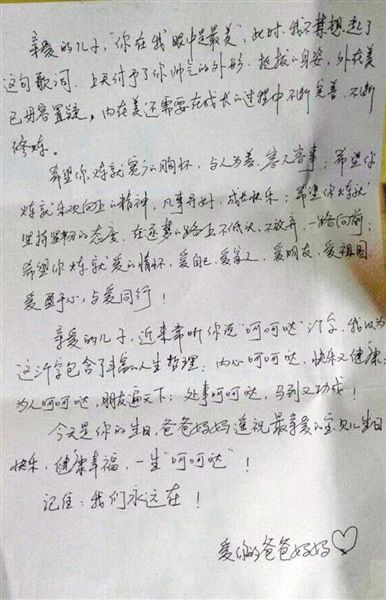 亲爱的儿子，“你在我眼中是最美”，此时，我不禁想起了
这句歌词。上天付予了你帅气的外形、挺拔的身姿，外在美
已毋容置疑，内在美还需要在成长的过程中不断完善、不断
修炼。
希望你炼就宽广的胸怀，与人为善、容人容事；希望你
炼就乐观向上的精神，凡事美好，成长快乐；希望你炼就
坚持坚韧的态度，在逐梦的路上不低头、不放弃、一路向前；
希望你炼就爱的情怀，爱自己、爱家人、爱朋友、爱祖国，
爱盈于心，与爱同行！
亲爱的儿子，近来常听你说“呵呵哒”三个字，我认为
这三个字包含了丰富的人生哲理：内心呵呵哒，快乐又健康；
为人呵呵哒，朋友遍天下；处事呵呵哒，马到又功成！
今天是你的生日，爸爸妈妈遥祝最亲爱的宝贝儿生日
快乐，健康幸福，一生“呵呵哒”！
记住：我们永远在！
爱你的爸爸妈妈